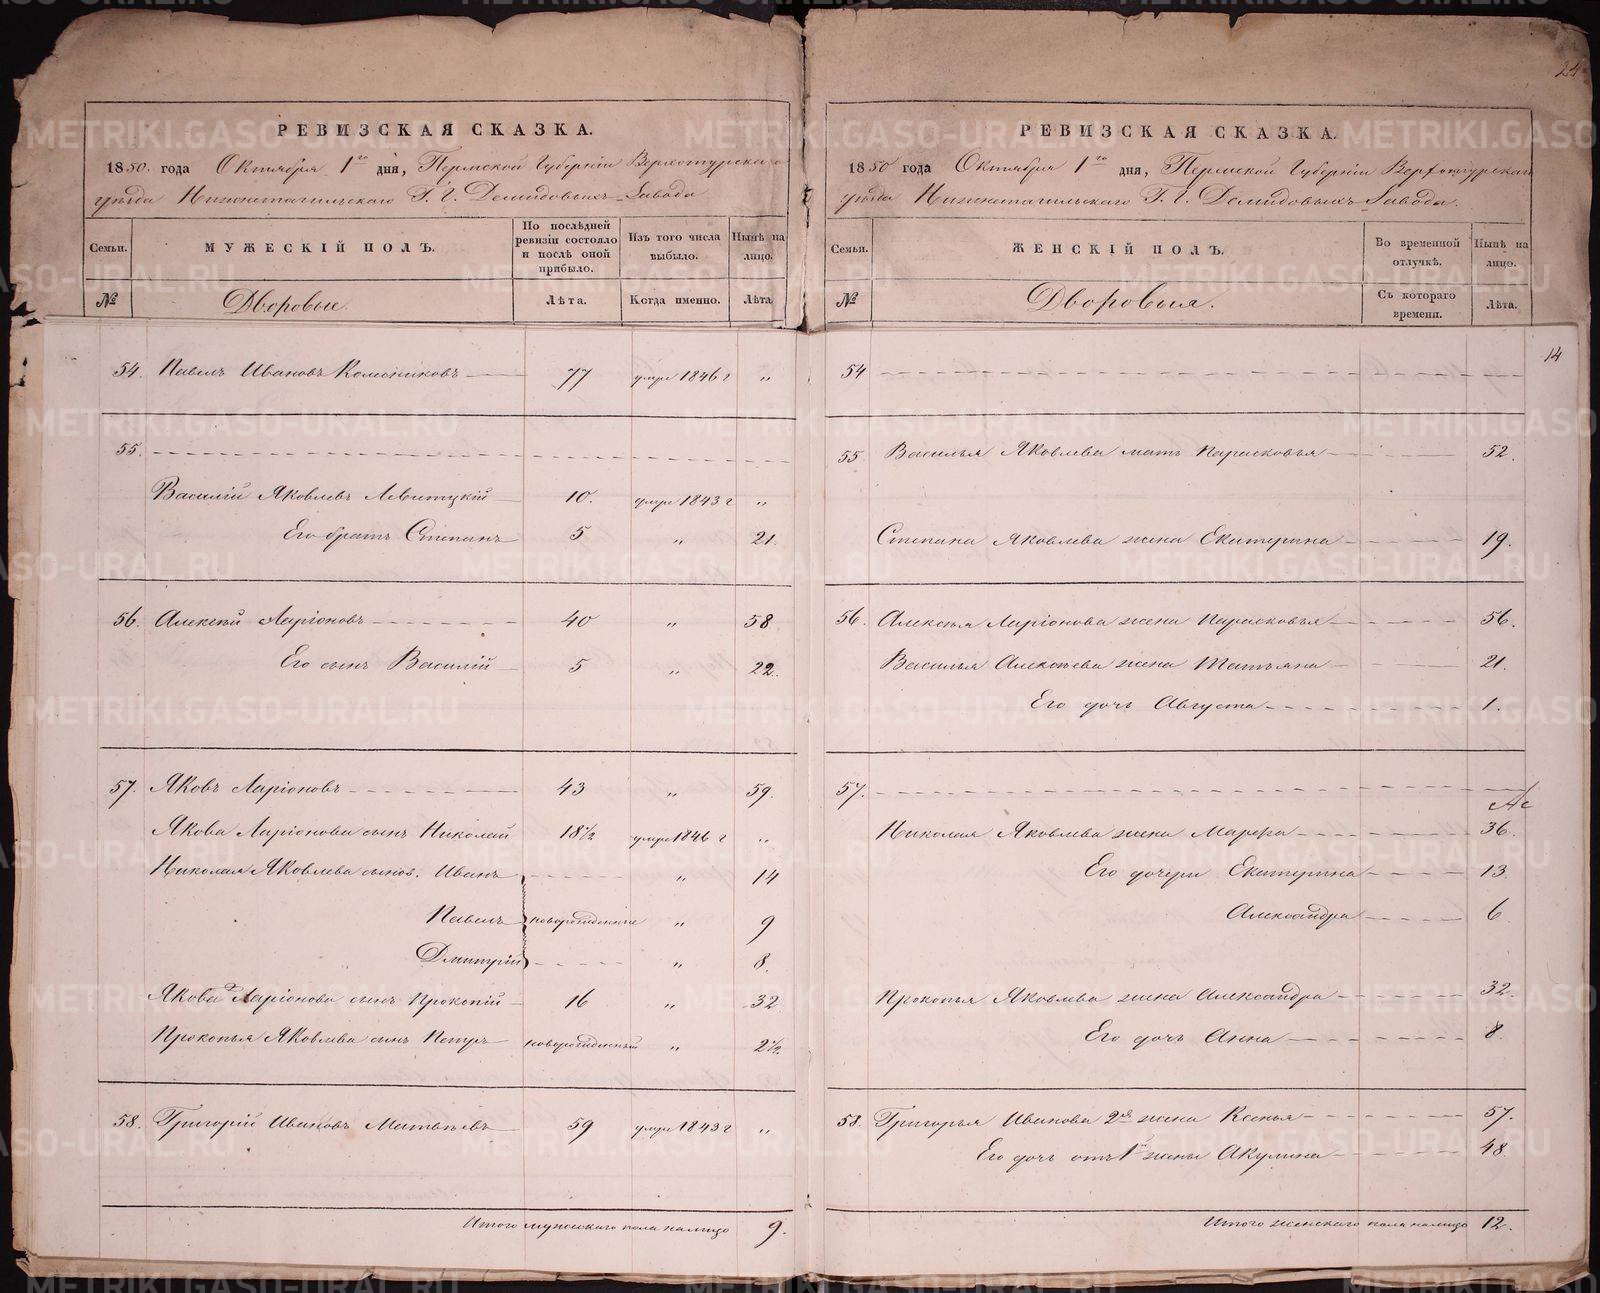 24
РЕВИЗСКАЯ СКАЗКА.
1850. года Октября 1го дня, Пермской Губерніи Верхотурскаго
уѣзда Нижнетагильскаго Г. Г. Демидовыхъ Завода
Семьи. МУЖЕСКІЙ ПОЛЪ. По послѣдней ревизіи состояло и послѣ оной прибыло. Изъ того числа выбыло. Нынѣ на лицо.
№ Дворовые. Лѣта. Когда именно. Лѣта
54. Павелъ Ивановъ Колесниковъ 77 умре 1846 г „
55.
Василій Яковлевъ Левитцкій 10. умре 1843 г „
Его братъ Степанъ 5 „ 21.
56. Алексѣй Ларіоновъ 40 „ 58
Его сынъ Василій 5 „ 22.
57. Яковъ Ларіоновъ 43 „ 59.
Якова Ларіонова сынъ Николай 18½ умре 1846 г „
Николая Яковлева сынов. Иванъ „ 14
Павелъ новорожденные „ 9
Дмитрій „ 8.
Якова Ларіонова сынъ Прокопій 16 „ 32
Прокопья Яковлева сынъ Петръ новорожденный „ 2½.
58. Григорій Ивановъ Матвѣевъ 59 умре 1843 г „
Итого мужескаго пола налицо 9.
РЕВИЗСКАЯ СКАЗКА.
1850 года Октября 1го дня, Пермской Губерніи Верхотурскаго
уѣзда Нижнетагильскаго Г. Г. Демидовыхъ Завода.
Семьи. ЖЕНСКІЙ ПОЛЪ. Во временной отлучкѣ. Нынѣ на лицо.
№ Дворовыя. Съ котораго времени. Лѣта.
14
54
55. Василья Яковлева мать Парасковья 52.
Степана Яковлева жена Екатерина 19.
56. Алексѣя Ларіонова жена Парасковья 56.
Василья Алексѣева жена Татьяна 21.
Его дочь Августа 1.
57.
Николая Яковлева жена Марфа 36.
Его дочери Екатерина 13
Александра 6
Прокопья Яковлева жена Александра 32.
Его дочь Анна 8.
58. Григорья Иванова 2я жена Ксенья 57.
Его дочь отъ 1й жены Акулина 48.
Итого женскаго пола налицо 12.
METRIKI.GASO-URAL.RU